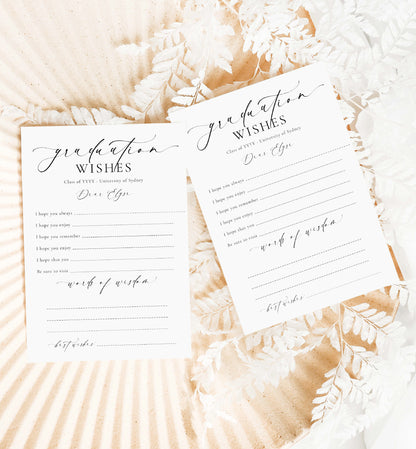 graduation
WISHES
Class of YYYY - University of Sydney
Dear Elyse
I hope you always
I hope you enjoy
I hope you remember
I hope you enjoy
I hope that you
Be sure to visit
words of wisdom
best wishes
graduation
WISHES
Class of YYYY - University of Sydney
Dear Elyse
I hope you always
I hope you enjoy
I hope you remember
I hope you enjoy
I hope that you
Be sure to visit
words of wisdom
best wishes